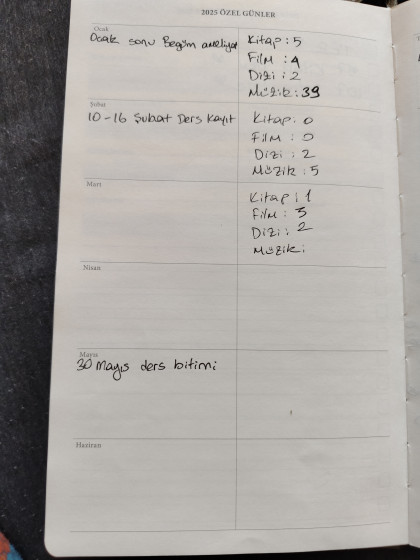 2025 ÖZEL GÜNLER
Ocak
Ocak sonu Begüm ameliyat
Kitap: 5
Film: 4
Dizi: 2
Müzik: 39
Şubat
10-16 Şubat Ders Kayıt
Kitap: 0
Film: 0
Dizi: 2
Müzik: 5
Mart
Kitap: 1
Film: 3
Dizi: 2
Müzik:
Nisan
Mayıs
30 Mayıs ders bitimi
Haziran